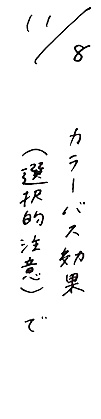 11/8
カラーバス効果
(選択的注意)で